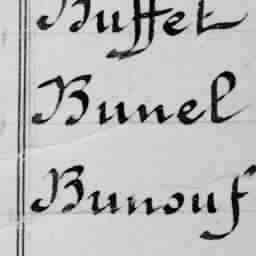 Buffet
Bunel
Bunouf